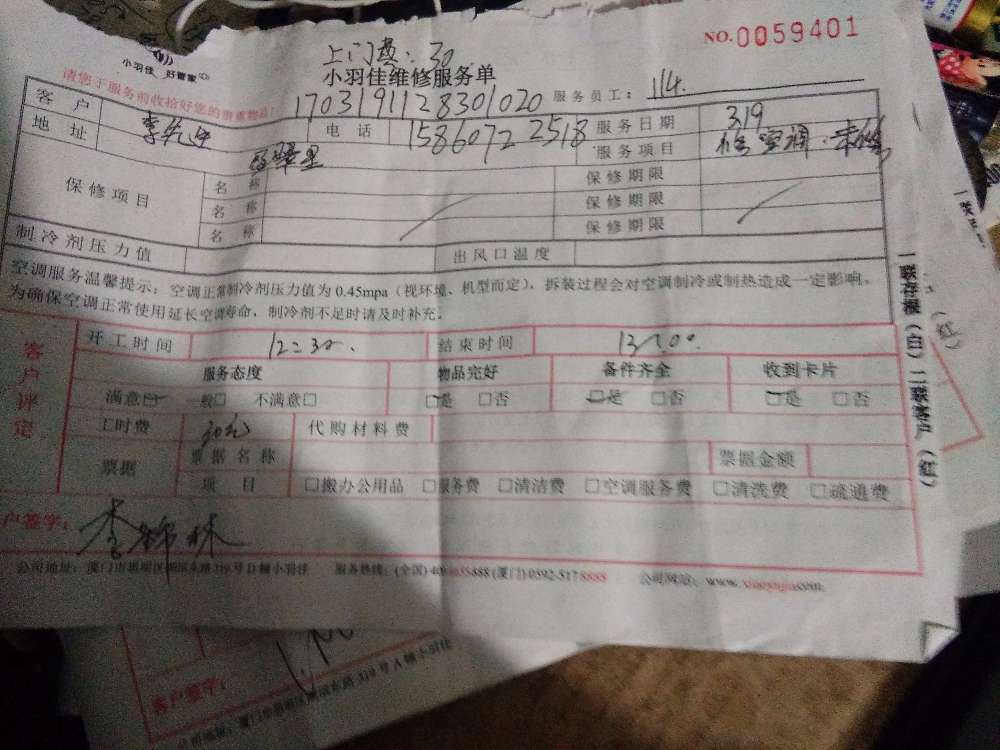 小羽佳 好管家
上门费:30
NO.0059401
小羽佳维修服务单
请您于服务前收拾好您的贵重物品!
1703191128301020 服务员工: 114.
客户 李先生 电话 15860722518 服务日期 3.19
地址 服务项目 空调
保修项目 名称 保修期限
名称 保修期限
名称 保修期限
制冷剂压力值 出风口温度
空调服务温馨提示:空调正常制冷剂压力值为0.45mpa(视环境、机型而定),拆装过程会对空调制冷或制热造成一定影响。
为确保空调正常使用延长空调寿命,制冷剂不足时请及时补充。
客户评定
开工时间 12:30. 结束时间 13:00.
服务态度 物品完好 备件齐全 收到卡片
满意□ 一般□ 不满意□ □是 □否 □是 □否 □是 □否
工时费 30元 代购材料费
票据 票据名称 票据金额
项目 □搬办公用品 □服务费 □清洁费 □空调服务费 □清洗费 □疏通费
户签字: 李锦林
一联存根(白)二联客户(红)
公司地址:厦门市思明区 319号D幢小羽佳 服务热线:(全国)400 (厦门)0592-5178888 公司网站:www.xiaoyujia.com
客户签字:
319号A幢小羽佳